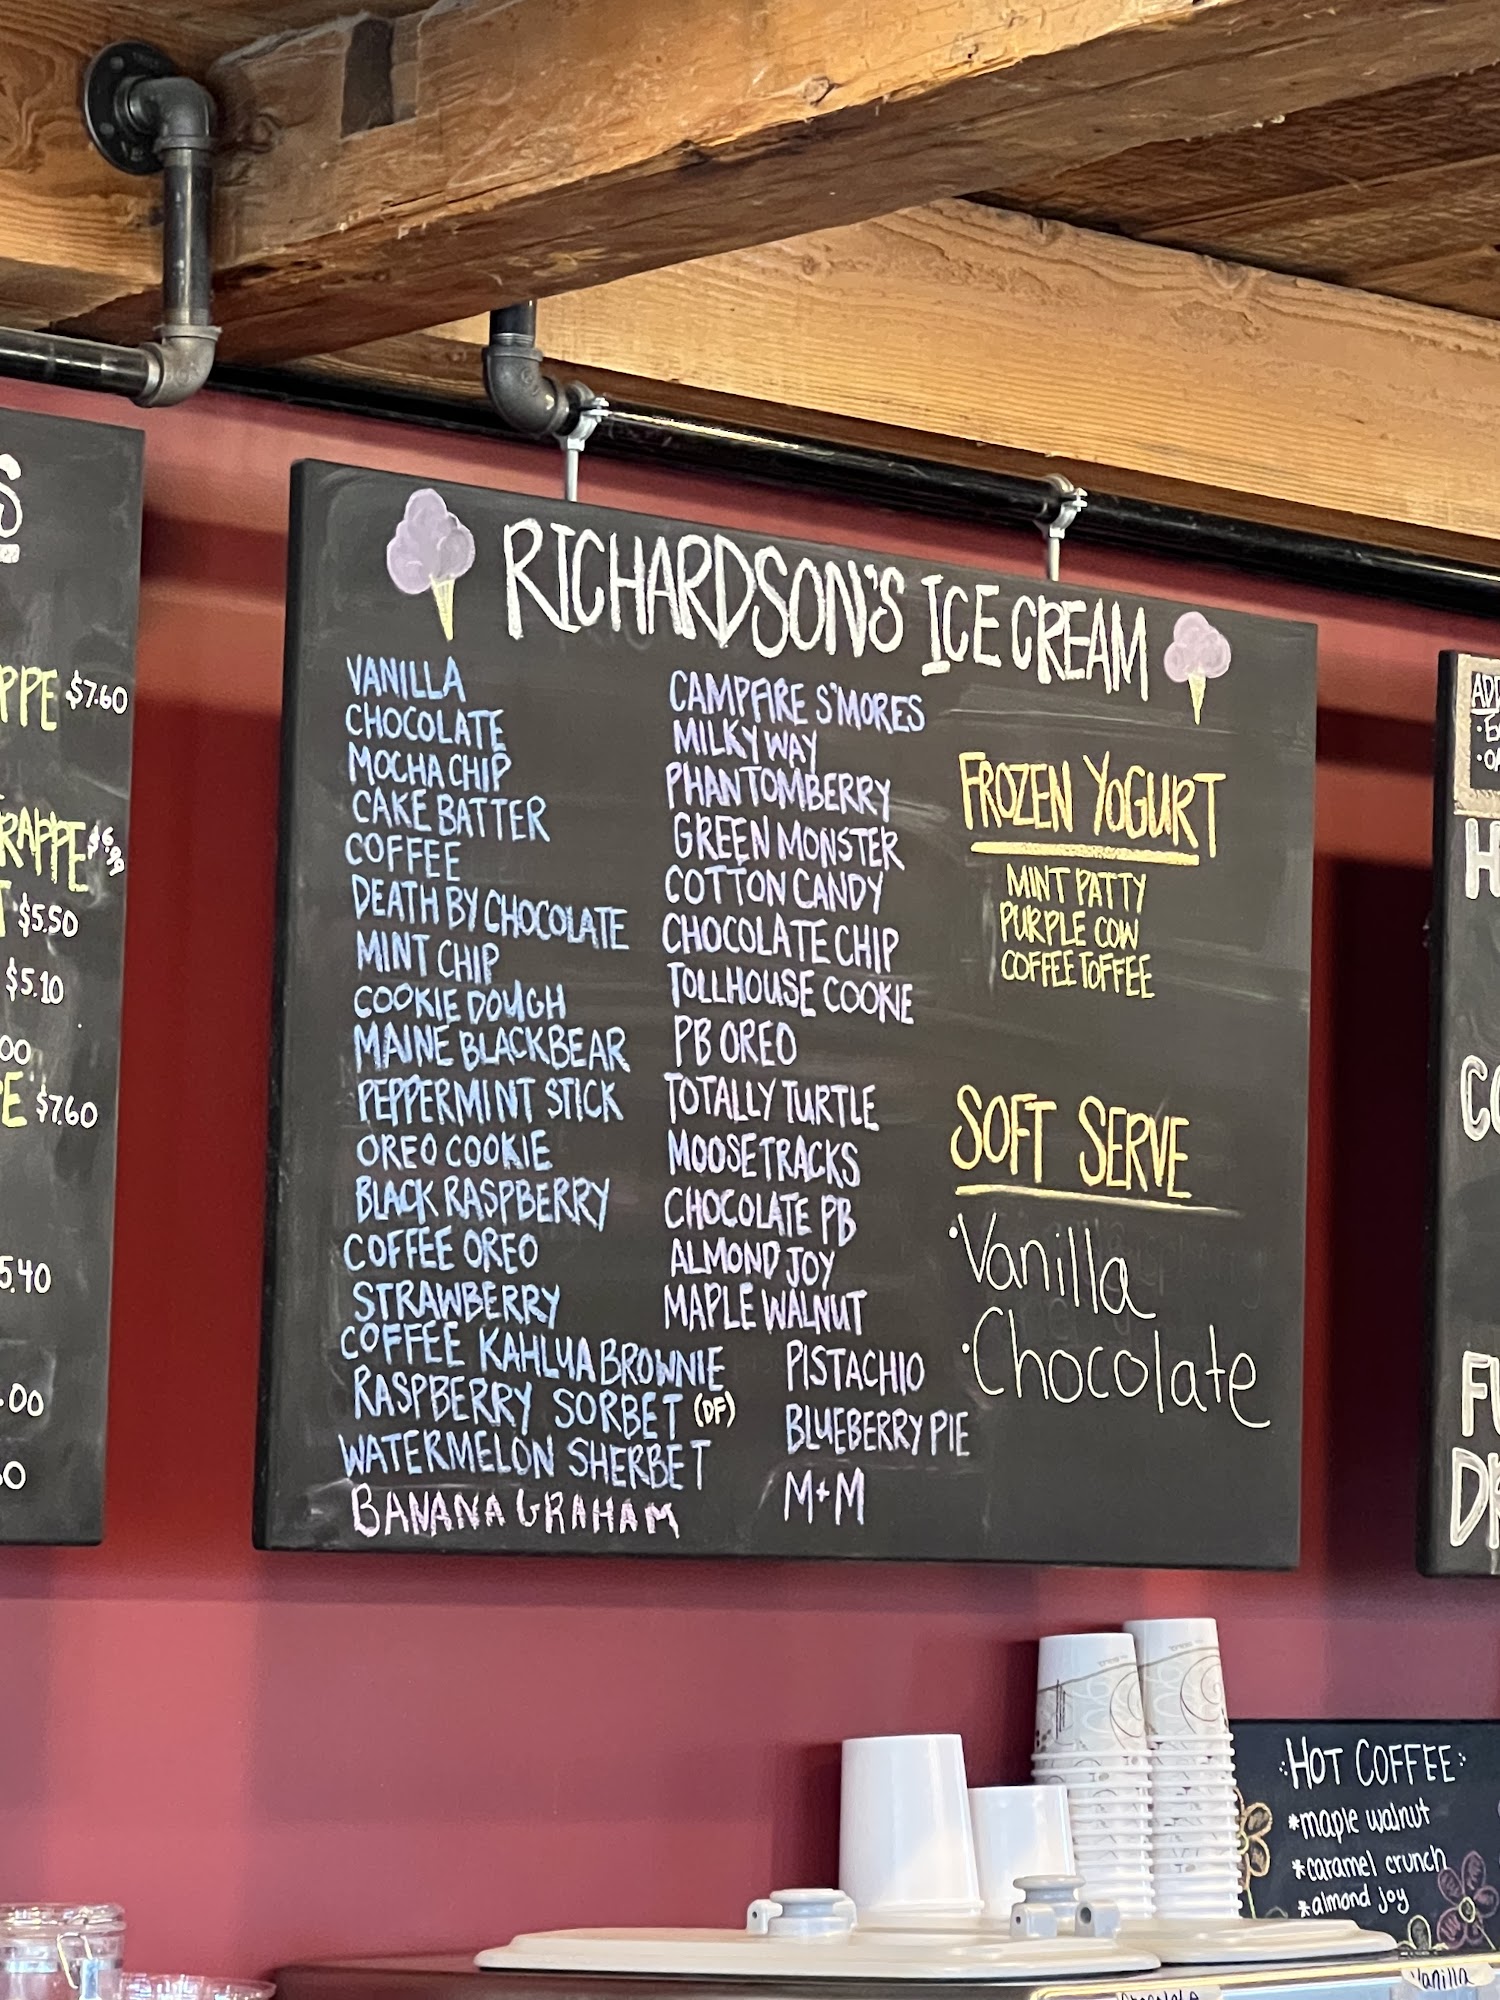 RICHARDSON'S ICE CREAM
VANILLA
CHOCOLATE
MOCHA CHIP
CAKE BATTER
COFFEE
DEATH BY CHOCOLATE
MINT CHIP
COOKIE DOUGH
MAINE BLACKBEAR
PEPPERMINT STICK
OREO COOKIE
BLACK RASPBERRY
COFFEE OREO
STRAWBERRY
COFFEE KAHLUA BROWNIE
RASPBERRY SORBET (DF)
WATERMELON SHERBET
BANANA GRAHAM
CAMPFIRE S'MORES
MILKY WAY
PHANTOMBERRY
GREEN MONSTER
COTTON CANDY
CHOCOLATE CHIP
TOLLHOUSE COOKIE
PB OREO
TOTALLY TURTLE
MOOSETRACKS
CHOCOLATE PB
ALMOND JOY
MAPLE WALNUT
PISTACHIO
BLUEBERRY PIE
M+M
FROZEN YOGURT
MINT PATTY
PURPLE COW
COFFEE TOFFEE
SOFT SERVE
·Vanilla
·Chocolate
$7.60
$6.99
$5.50
$5.10
$7.60
5.40
HOT COFFEE
*maple walnut
*caramel crunch
*almond joy
Vanilla